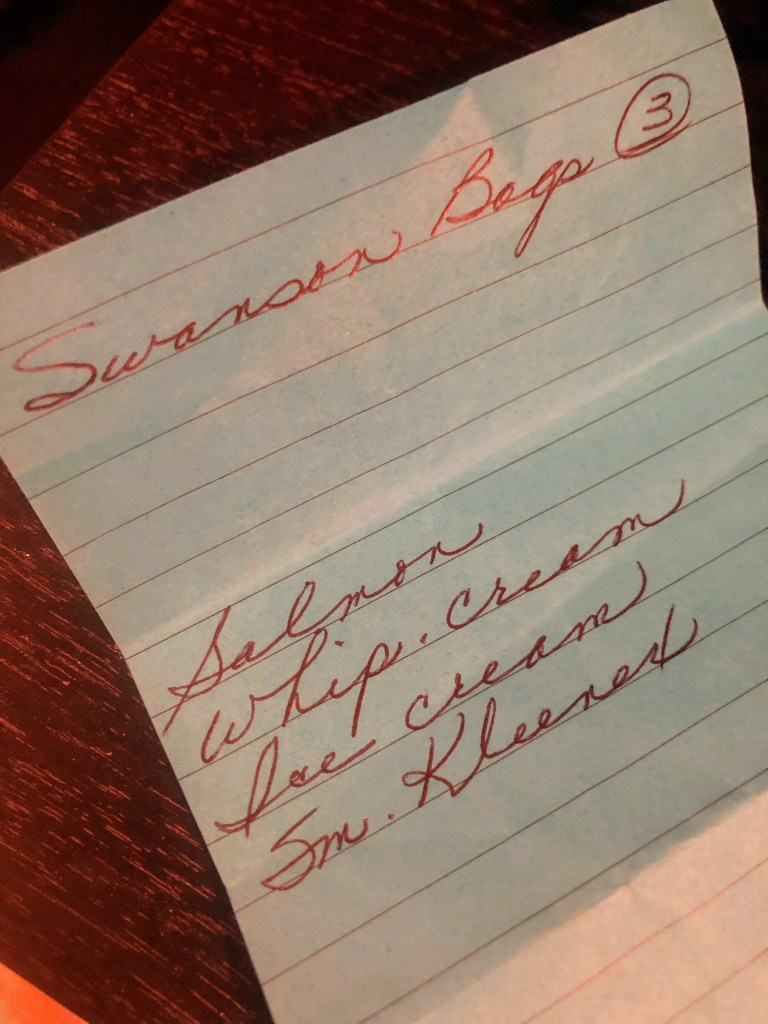 Swanson Bags 3
Salmon
Whip. cream
Ice cream
Sm. Kleenex